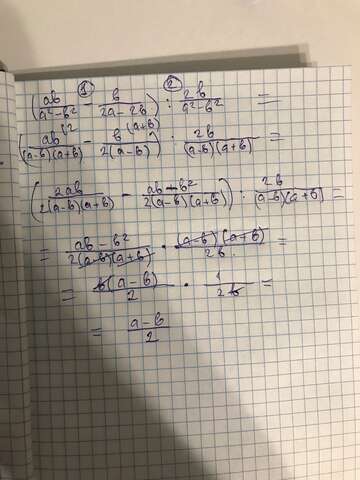 ① ②
(ab/(a²-b²) - b/(2a-2b)) : 2b/(a²-b²) =
(ab^(/2)/((a-b)(a+b)) - b^(/(a+b))/(2(a-b))) : 2b/((a-b)(a+b)) =
(2ab/(2(a-b)(a+b)) - (ab+b²)/(2(a-b)(a+b))) : 2b/((a-b)(a+b)) =
= (ab-b²)/(2(a-b)(a+b)) · ((a-b)(a+b))/2b =
= b(a-b)/2 · 1/2b =
= (a-b)/2